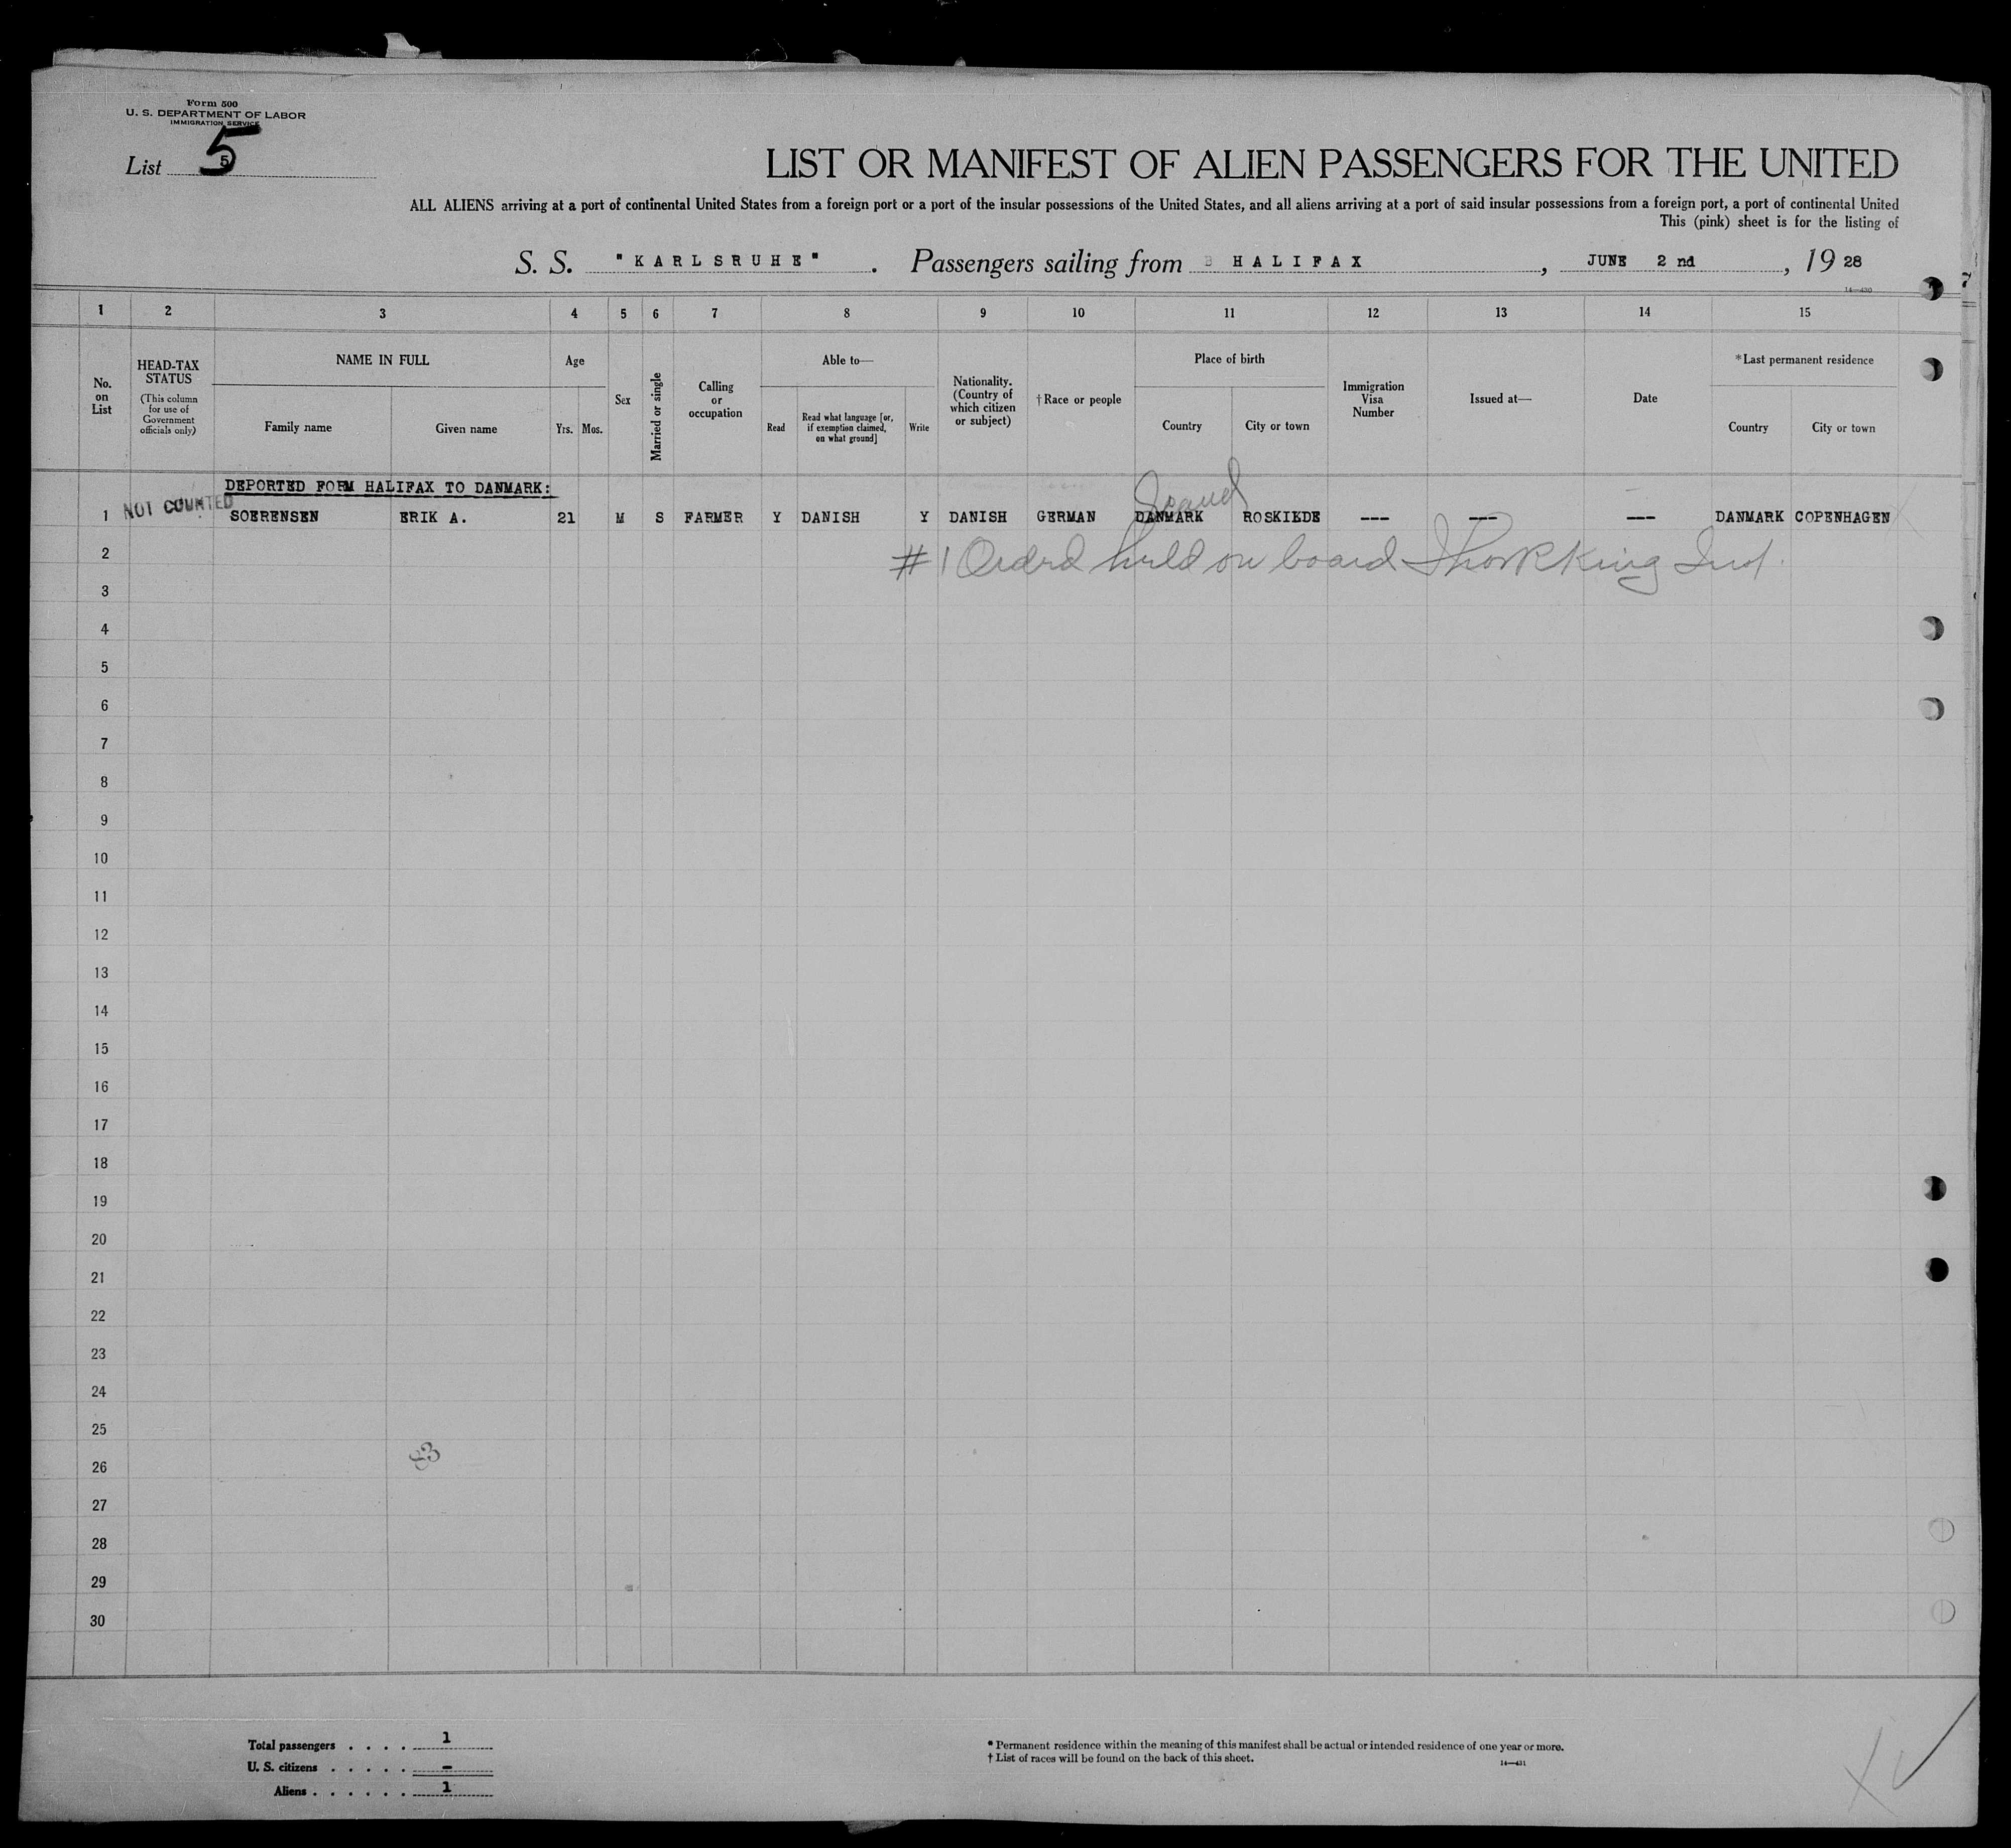 Form 500
U. S. DEPARTMENT OF LABOR
IMMIGRATION SERVICE
List 5
5
LIST OR MANIFEST OF ALIEN PASSENGERS FOR THE UNITED
ALL ALIENS arriving at a port of continental United States from a foreign port or a port of the insular possessions of the United States, and all aliens arriving at a port of said insular possessions from a foreign port, a port of continental United
This (pink) sheet is for the listing of
S. S. "KARLSRUHE". Passengers sailing from HALIFAX, JUNE 2 nd, 19 28
14—430
1 2 3 4 5 6 7 8 9 10 11 12 13 14 15
No. on List
HEAD-TAX STATUS (This column for use of Government officials only)
NAME IN FULL
Family name Given name
Age
Yrs. Mos.
Sex
Married or single
Calling or occupation
Able to—
Read Read what language [or, if exemption claimed, on what ground] Write
Nationality. (Country of which citizen or subject)
†Race or people
Place of birth
Country City or town
Immigration Visa Number
Issued at—
Date
*Last permanent residence
Country City or town
DEPORTED FORM HALIFAX TO DANMARK:
NOT COUNTED
Scand
1 SOERENSEN ERIK A. 21 M S FARMER Y DANISH Y DANISH GERMAN DANMARK ROSKILDE --- --- --- DANMARK COPENHAGEN
2 #1 Ordrd held on board King Insp.
3
4
5
6
7
8
9
10
11
12
13
14
15
16
17
18
19
20
21
22
23
24
25
26
27
28
29
30
Total passengers . . . . 1
U. S. citizens . . . . . -
Aliens . . . . . . 1
* Permanent residence within the meaning of this manifest shall be actual or intended residence of one year or more.
† List of races will be found on the back of this sheet.
14—431